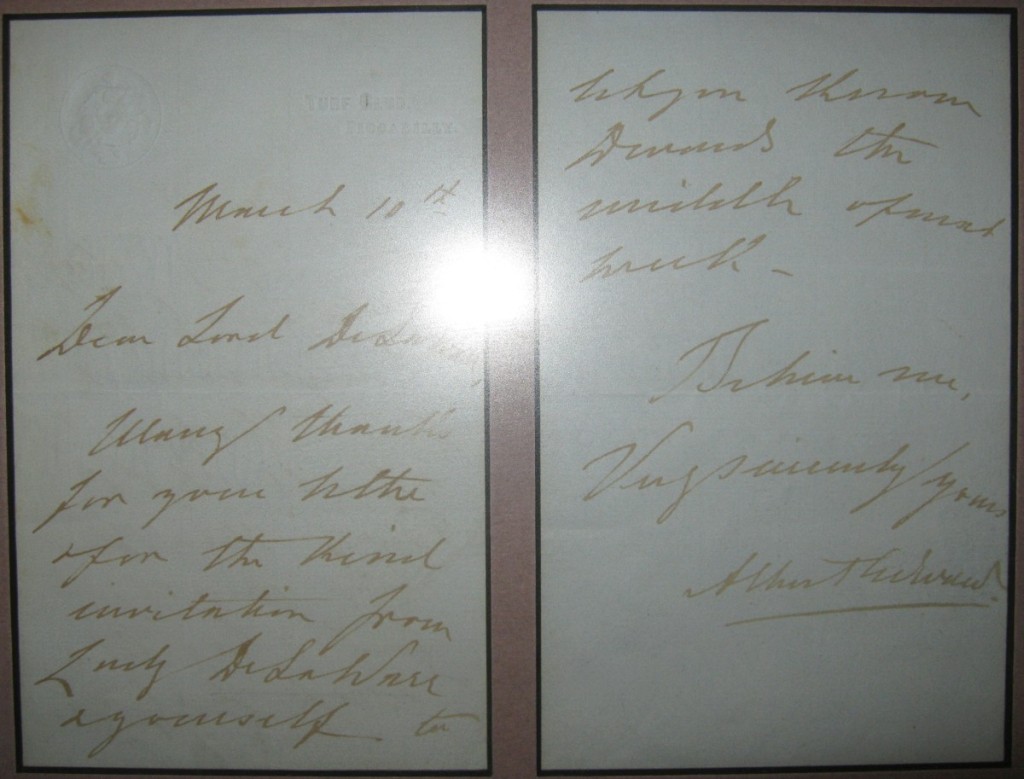 TURF CLUB,
PICCADILLY.
March 10th
Dear Lord De La Warr,
Many thanks
for your letter
& for the kind
invitation from
Lady De La Warr
& yourself to
let you know
towards the
middle of next
week –
Believe me,
Very sincerely yours
Albert Edward.